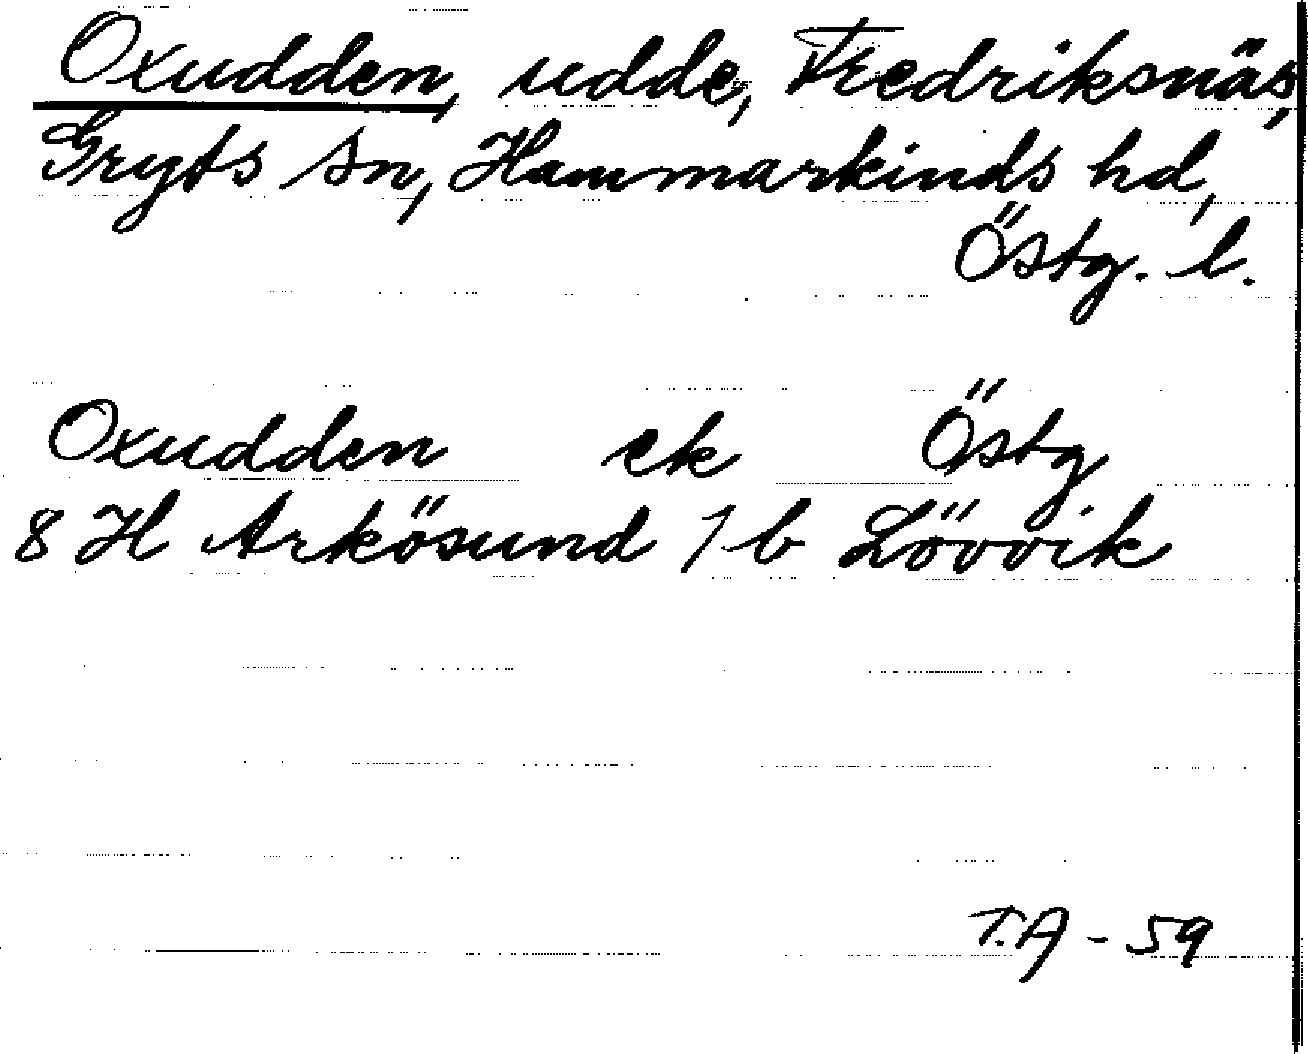 Oxudden, udde, Fredriksnäs,
Gryts sn, Hammarkinds hd,
Östg. l.
Oxudden ek Östg.
8 H Arkösund 7 b Lövvik
T.A - 59